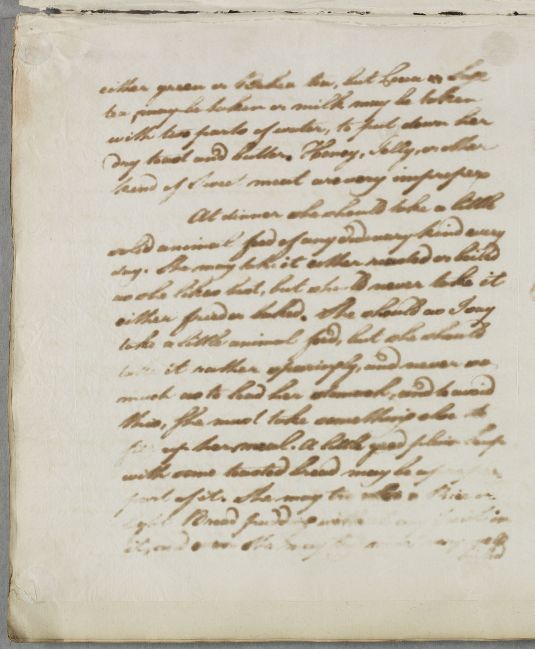 either green or Bohea tea, but
tea, may be taken or milk may be taken
with two parts of water, to put down her
dry toast and butter. Honey, Jelly, or other
kind of Sweet meat are very improper
At dinner she should take a little
solid animal food of any ordinary kind every
day. She may take it either roasted or boiled
as she likes best, but should never take it
either fried or baked. She should as I say
take a little animal food, but she should
take it rather sparingly, and never so
much as to load her stomach, and to avoid
this, She must take something else to
up her meal. A little good plain Soup
with some toasted bread may be a
part of it. She may too take a Rice or
light Bread pudding with
it, and even she may